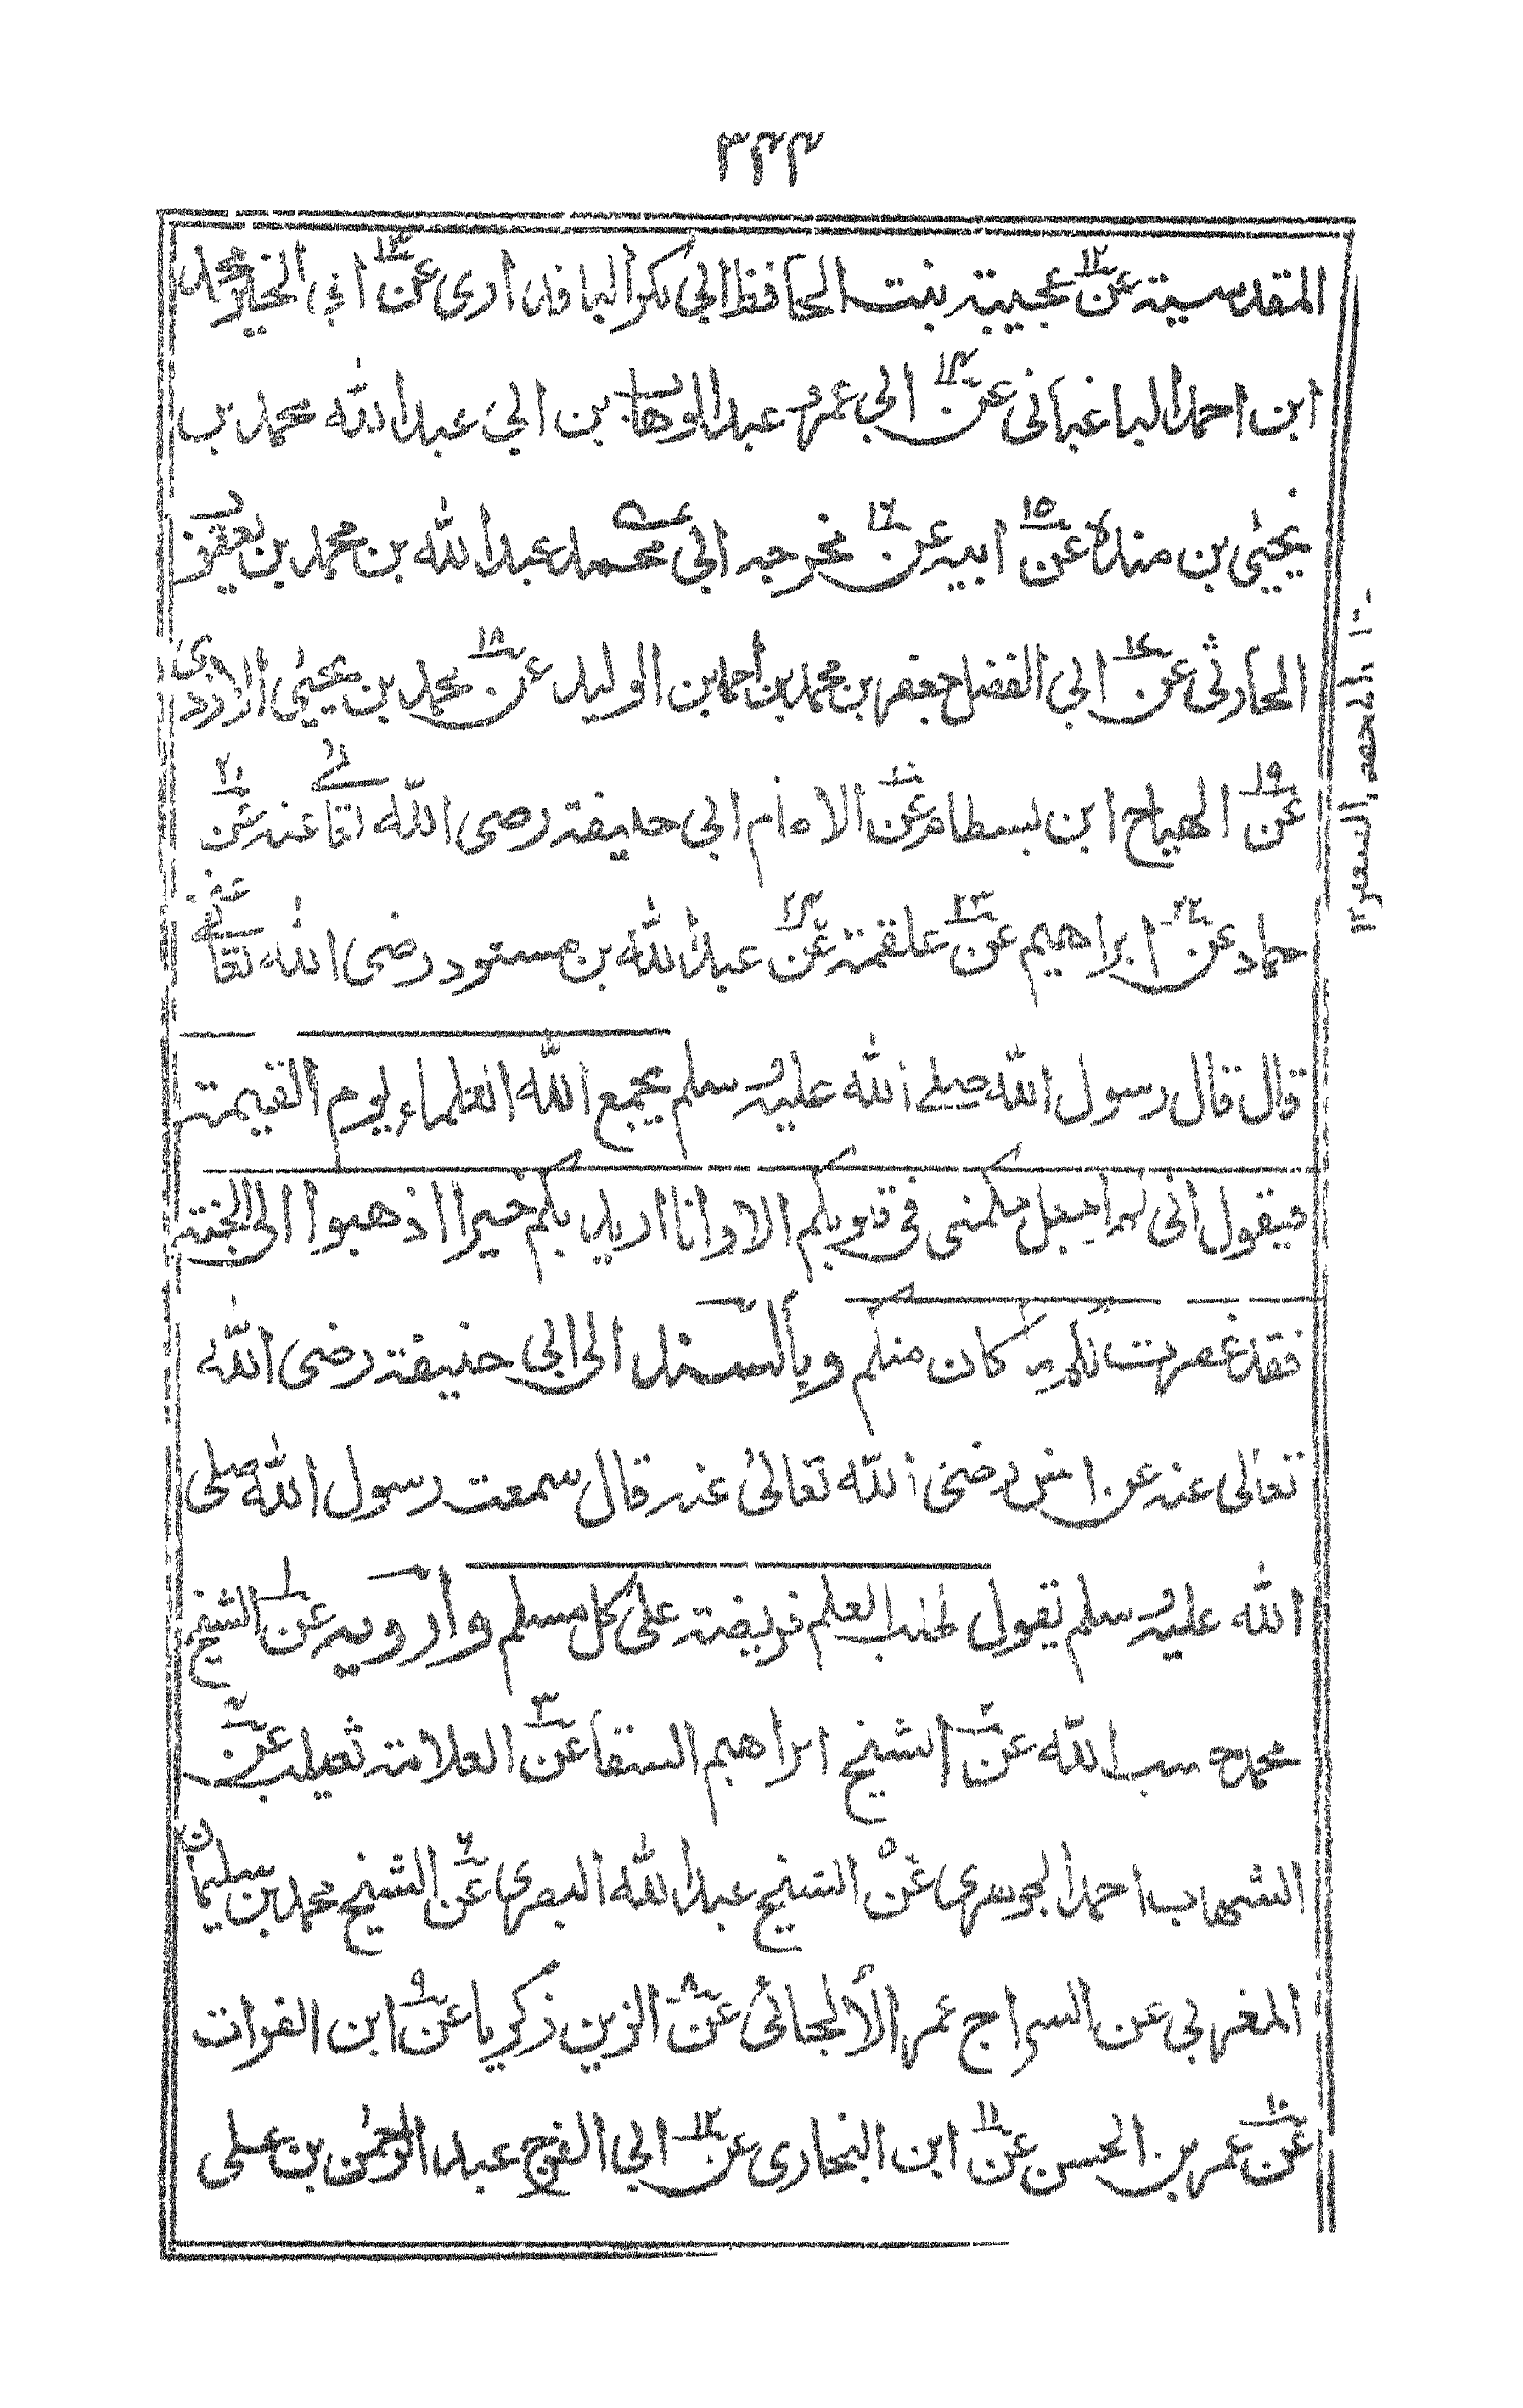 ٣٣٣
المقدسية عن١٢ عجيبة بنت الحافظ ابي بكر الباقداري عن١٣ ابي الخير محمد
ابن احمد الباغباني عن١٤ ابي عمرو عبد الوهاب بن ابي عبد الله محمد بن
يحيىٰ بن مندة عن١٥ ابيه عن١٦ مخرجه ابي محمد عبد الله بن محمد بن يعقوب
الحارثي عن١٧ ابي الفضل جعفر بن محمد بن احمد بن الوليد عن١٨ محمد بن يحيىٰ الازدي
عن١٩ الهياج ابن بسطام عن٢٠ الامام ابي حنيفة رضى الله تعالى عنه عن٢١
حماد عن٢٢ ابراهيم عن٢٣ علقمة عن٢٤ عبد الله بن مسعود رضى الله تعالى عنه
قال قال رسول الله صلى الله عليه وسلم يجمع الله العلماء يوم القيمة
فيقول اني لم اجعل حكمتي في قلوبكم الا وانا اريد بكم خيرا اذهبوا الى الجنة
فقد غفرت لكم ما كان منكم وبالسند الى ابي حنيفة رضى الله
تعالى عنه عن انس رضى الله تعالىٰ عنه قال سمعت رسول الله صلى
الله عليه وسلم يقول طلب العلم فريضة على كل مسلم وارويه عن١ الشيخ
محمد حسب الله عن٢ الشيخ ابراهيم السقا عن٣ العلامة ثعيلب عن٤
الشهاب احمد الجوهري عن٥ الشيخ عبد الله البصري عن٦ الشيخ محمد بن سليمان
المغربي عن السراج عمر الألجائي عن٨ الزين زكريا عن٩ ابن الفرات
عن١٠ عمر بن الحسن عن١١ ابن البخاري عن١٢ ابي الفرج عبد الرحمٰن بن علي